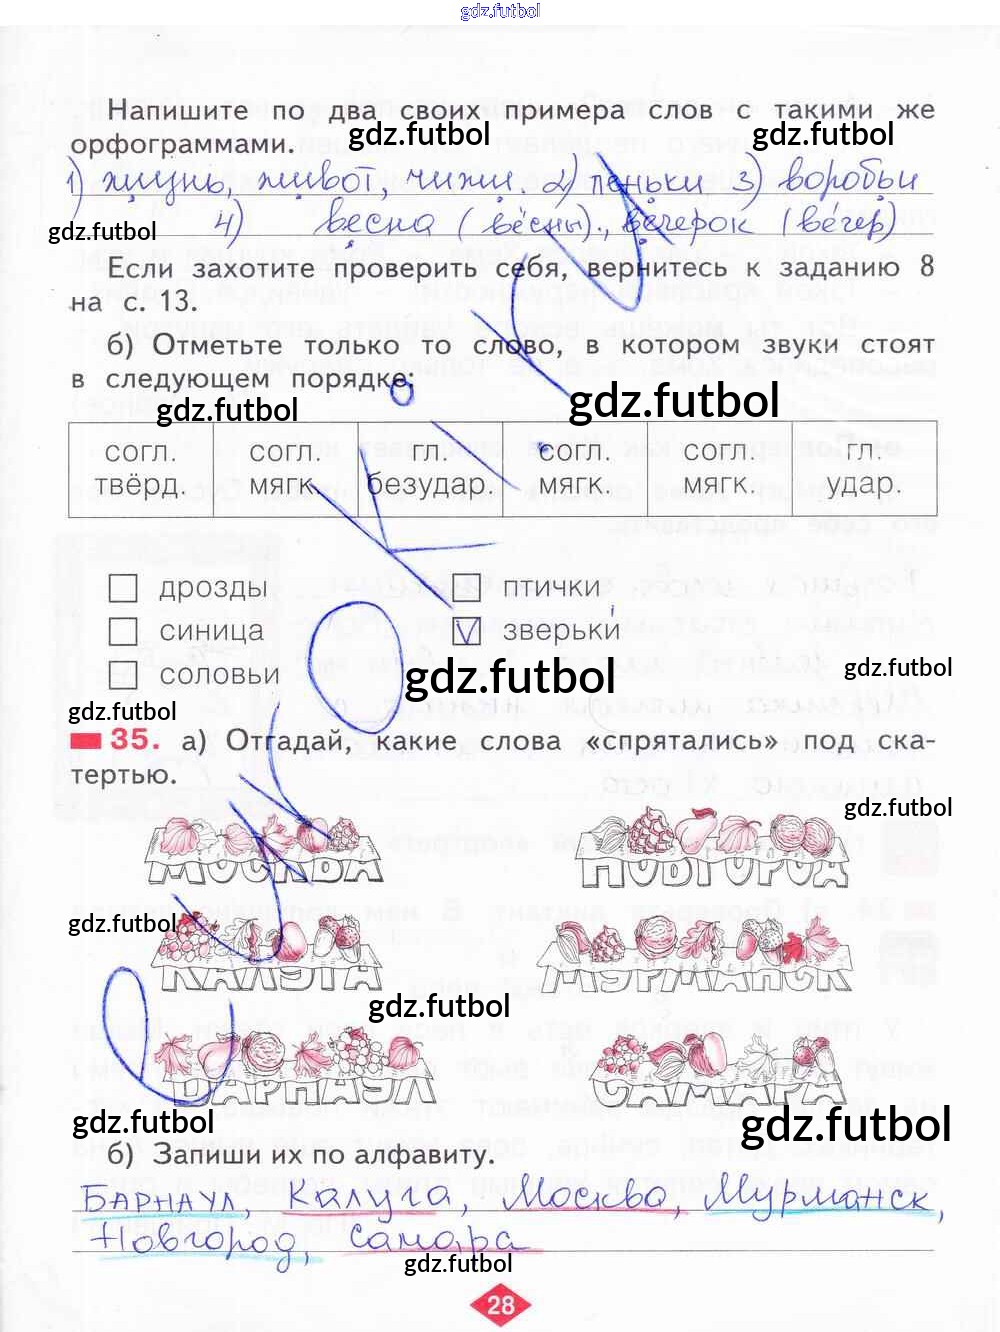 gdz.futbol
Напишите по два своих примера слов с такими же
орфограммами.
gdz.futbol
gdz.futbol
1) жизнь, живот, чижи. 2) пеньки 3) воробьи
gdz.futbol
4) весна (вёсны)., вечерок (ве́чер)
Если захотите проверить себя, вернитесь к заданию 8
на с. 13.
б) Отметьте только то слово, в котором звуки стоят
в следующем порядке.
gdz.futbol
gdz.futbol
согл. твёрд. согл. мягк. гл. безудар. согл. мягк. согл. мягк. гл. удар.
дрозды птички
синица V зверьки́
соловьи
gdz.futbol
gdz.futbol
gdz.futbol
35. а) Отгадай, какие слова «спрятались» под ска-
тертью.
gdz.futbol
МОСКВА НОВГОРОД
gdz.futbol
КАЛУГА МУРМАНСК
gdz.futbol
БАРНАУЛ САМАРА
gdz.futbol
gdz.futbol
б) Запиши их по алфавиту.
Барнаул, Калуга, Москва, Мурманск,
Новгород, Самара
gdz.futbol
28